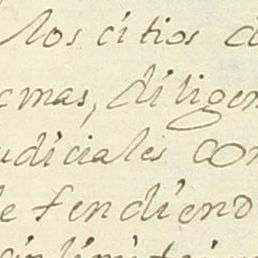 los citios d
emas, diligen
udiciales con
efendiendo